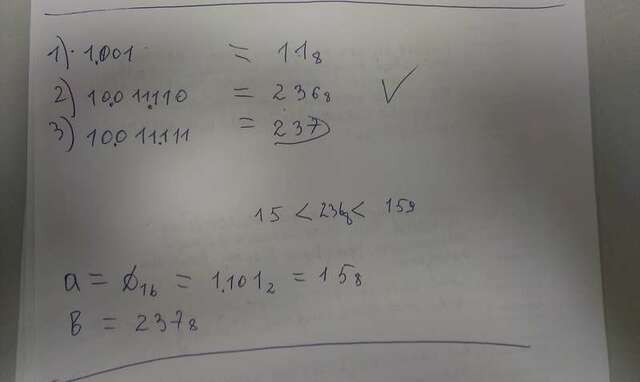 1) 1.001 = 11₈
2) 10.011.110 = 236₈ ✓
3) 10.011.111 = 237
15 < 236₈ < 159
a = D₁₆ = 1.101₂ = 15₈
B = 237₈